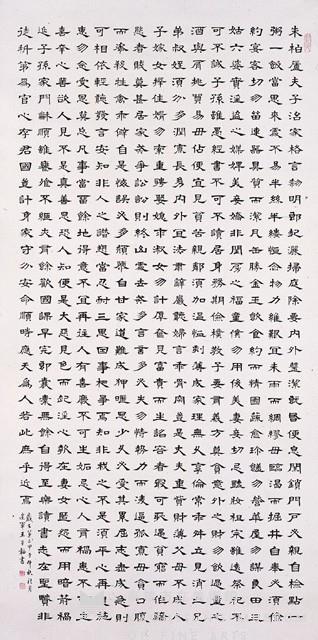 朱柏廬夫子治家格言黎明即起灑掃庭除要內外整潔既昏便息關鎖門戶必親自檢點一
粥一飯當思來處不易半絲半縷恒念物力維艱宜未雨而綢繆毋臨渴而掘井自奉必須儉
約宴客切勿留連器具質而潔瓦缶勝金玉飲食約而精園蔬愈珍饈勿營華屋勿謀良田三
姑六婆實淫盜之媒婢美妾嬌非閨房之福童僕勿用俊美妻妾切忌艷妝祖宗雖遠祭祀不
可不誠子孫雖愚經書不可不讀居身務期儉樸教子要有義方勿貪意外之財勿飲過量之
酒與肩挑貿易毋佔便宜見貧苦親鄰須加溫恤刻薄成家理無久享倫常乖舛立見消亡兄
弟叔侄須分多潤寡長幼內外宜法肅辭嚴聽婦言乖骨肉豈是丈夫重貲財薄父母不成人
子嫁女擇佳婿勿索重聘娶媳求淑女勿計厚奩見富貴而生諂容者最可恥遇貧窮而作驕
態者賤莫甚居家戒爭訟訟則終凶處世戒多言言多必失勿恃勢力而凌逼孤寡毋貪口腹
而恣殺牲禽乖僻自是悔誤必多頹惰自甘家道難成狎暱惡少久必受其累屈志老成急則
可相依輕聽發言安知非人之譖愬當忍耐三思因事相爭焉知非我之不是須平心暗想施
惠勿念受恩莫忘凡事當留餘地得意不宜再往人有喜慶不可生妒忌心人有禍患不可生
喜幸心善欲人見不是真善惡恐人知便是大惡見色而起淫心報在妻女匿怨而用暗箭禍
延子孫家門和順雖饔飧不繼亦有餘歡國課早完即囊橐無餘自得至樂讀書志在聖賢非
徒科第為官心存君國豈計身家守分安命順時應天為人若此庶乎近焉